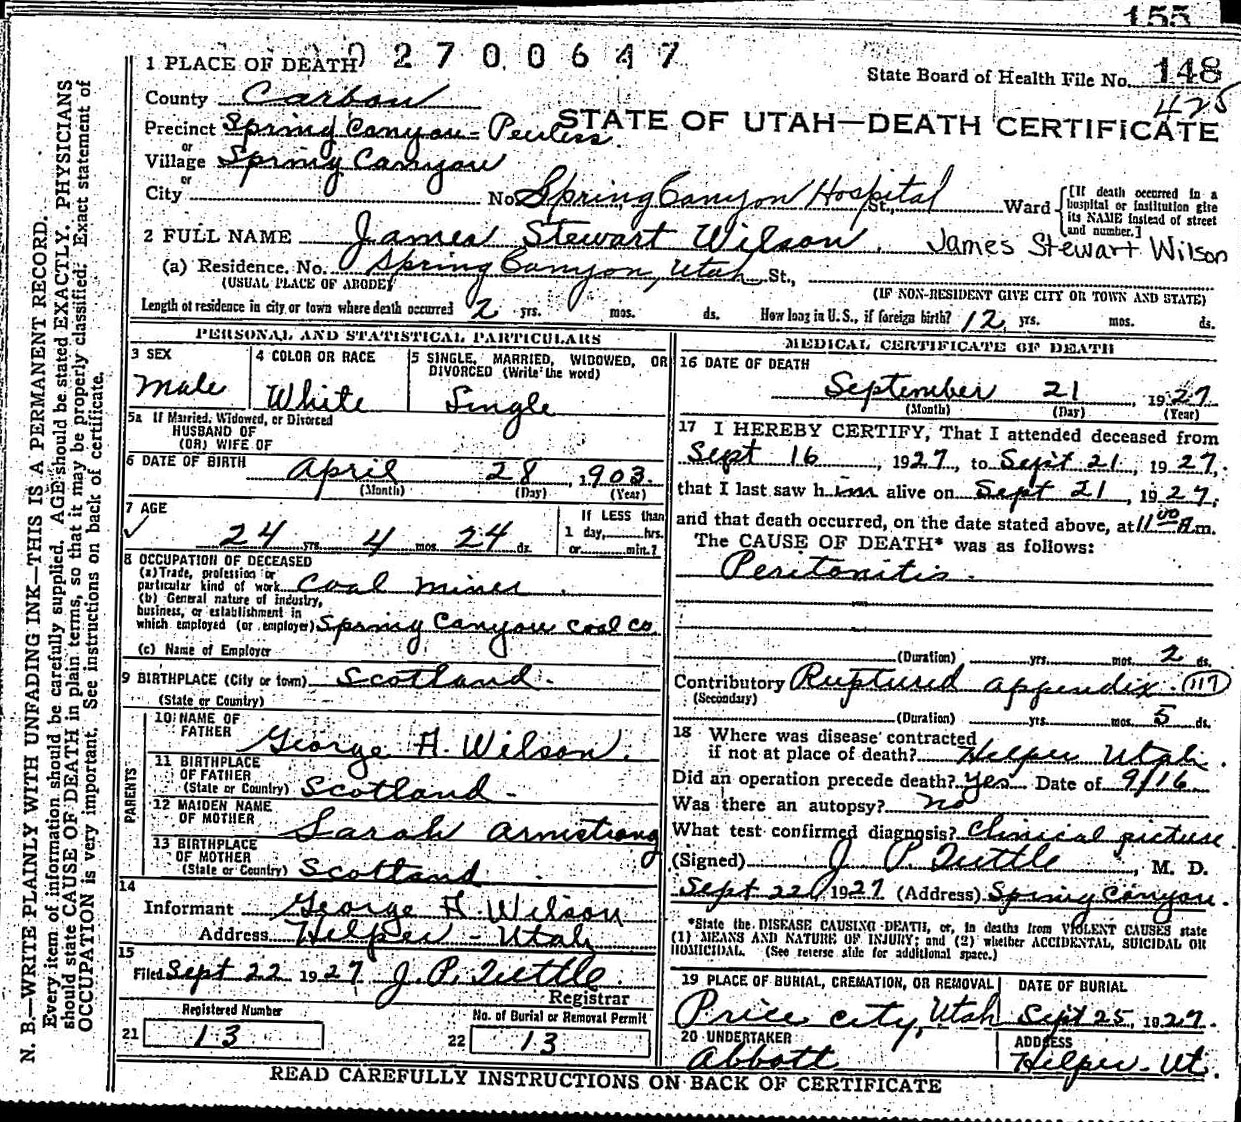 155
0 2 7 0 0 6 4 7
1 PLACE OF DEATH
State Board of Health File No. 148
425
County Carbon
STATE OF UTAH—DEATH CERTIFICATE
Precinct Spring Canyon - Peerless.
or
Village Spring Canyon
or
City No. Spring Canyon Hospital St., Ward
[If death occurred in a hospital or institution give its NAME instead of street and number.]
2 FULL NAME James Stewart Wilson. James Stewart Wilson
(a) Residence. No. Spring Canyon, Utah St.,
(USUAL PLACE OF ABODE)
(IF NON-RESIDENT GIVE CITY OR TOWN AND STATE)
Length of residence in city or town where death occurred 2 yrs. mos. ds. How long in U.S., if foreign birth? 12 yrs. mos. ds.
PERSONAL AND STATISTICAL PARTICULARS
3 SEX
Male
4 COLOR OR RACE
White
5 SINGLE, MARRIED, WIDOWED, OR
DIVORCED (Write the word)
Single
5a If Married, Widowed, or Divorced
HUSBAND OF
(OR) WIFE OF
6 DATE OF BIRTH
April 28, 1903.
(Month) (Day) (Year)
7 AGE
24 yrs. 4 mos. 24 ds.
If LESS than
1 day, hrs.
or min.?
8 OCCUPATION OF DECEASED
(a) Trade, profession or
particular kind of work Coal Miner.
(b) General nature of industry,
business, or establishment in
which employed (or employer) Spring Canyon Coal Co.
(c) Name of Employer
9 BIRTHPLACE (City or town) Scotland.
(State or Country)
PARENTS
10 NAME OF
FATHER George H. Wilson.
11 BIRTHPLACE
OF FATHER
(State or Country) Scotland -
12 MAIDEN NAME
OF MOTHER Sarah Armstrong
13 BIRTHPLACE
OF MOTHER
(State or Country) Scotland
14
Informant George H Wilson
Address Helper - Utah
15
Filed Sept 22 1927 J. P. Tuttle.
Registrar
Registered Number
21 13
No. of Burial or Removal Permit
22 13
MEDICAL CERTIFICATE OF DEATH
16 DATE OF DEATH
September 21, 1927.
(Month) (Day) (Year)
17 I HEREBY CERTIFY, That I attended deceased from
Sept 16, 1927, to Sept 21, 1927,
that I last saw him alive on Sept 21, 1927,
and that death occurred, on the date stated above, at 11 00 A m.
The CAUSE OF DEATH* was as follows:
Peritonitis.
(Duration) yrs. mos. 2 ds.
Contributory Ruptured appendix. 117
(Secondary)
(Duration) yrs. mos. 5 ds.
18 Where was disease contracted
if not at place of death? Helper Utah.
Did an operation precede death? Yes Date of 9/16
Was there an autopsy? no
What test confirmed diagnosis? Clinical picture.
(Signed) J. P. Tuttle, M. D.
Sept 22, 1927 (Address) Spring Canyon.
*State the DISEASE CAUSING DEATH, or, in deaths from VIOLENT CAUSES state
(1) MEANS AND NATURE OF INJURY; and (2) whether ACCIDENTAL, SUICIDAL OR
HOMICIDAL. (See reverse side for additional space.)
19 PLACE OF BURIAL, CREMATION, OR REMOVAL
Price City, Utah
DATE OF BURIAL
Sept 25, 1927.
20 UNDERTAKER
Abbott
ADDRESS
Helper - Ut.
READ CAREFULLY INSTRUCTIONS ON BACK OF CERTIFICATE
N. B.—WRITE PLAINLY WITH UNFADING INK—THIS IS A PERMANENT RECORD.
Every item of information should be carefully supplied. AGE should be stated EXACTLY. PHYSICIANS
should state CAUSE OF DEATH in plain terms, so that it may be properly classified. Exact statement of
OCCUPATION is very important. See instructions on back of certificate.